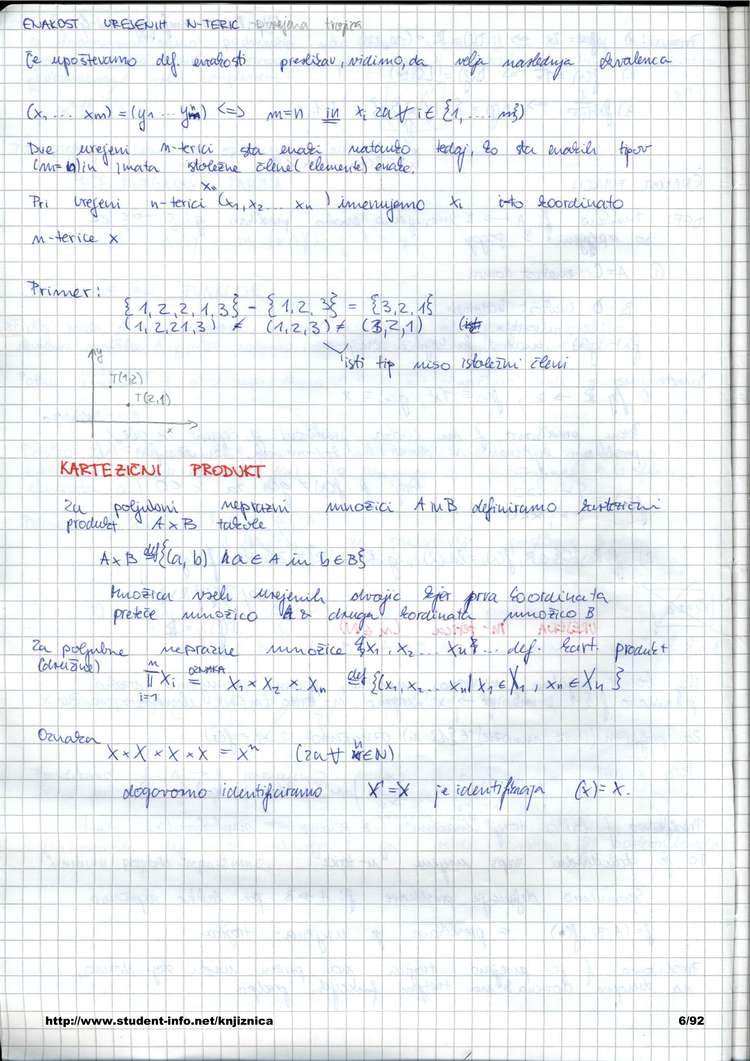 ENAKOST UREJENIH N-TERIC urejena trojica
Če upoštevamo def. enakosti preslikav, vidimo, da velja naslednja ekvalenca
(x, ... xm) = (y1 ... yn) <=> m=n in xi za ∀ i ∈ {1, .... n})
Dve urejeni n-terici sta enaki natanko tedaj, ko sta enakih tipov
(m=n) in imata istoležne člene (elemente) enake.
Pri urejeni n-terici (x1, x2 ... xn) imenujemo xi i-to koordinato
n-terice x
Primer:
{1, 2, 2, 1, 3} - {1, 2, 3} = {3, 2, 1}
(1, 2, 21, 3) ≠ (1, 2, 3) ≠ (3, 2, 1)
isti tip niso istoležni členi
y
T(1,2)
T(2,1)
x
KARTEZIČNI PRODUKT
Za poljubni neprazni množici A in B definiramo kartezični
produkt A × B takole
A × B def= {(a, b) ; a ∈ A in b ∈ B}
Množica vseh urejenih dvojic kjer prva koordinata
preteče množico A & druga kordinata množico B
UREJENA N-TERICA
Za poljubne neprazne množice {x1, x2 ... xn} ... def. kart. produkt
(družine)
n
∏ Xi OZNAKA = X1 × X2 × Xn def= {(x1, x2 ... xn | x1 ∈ X1, xn ∈ Xn}
i=1
Oznaka
X × X × X × X = Xⁿ (za ∀ n ∈ N)
dogovorno identificiramo X¹ = X je identifikacija (x) = x.
http://www.student-info.net/knjiznica
6/92